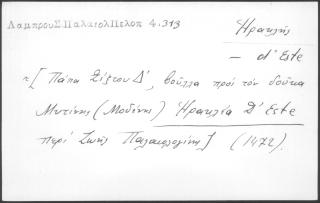 ΛαμπρουΣΠαλαιολΠελοπ 4.313
Ἡρακλῆς
– d'Este
"[Πάπα Σίξτου Δ', βούλλα πρὸς τὸν δοῦκα
Μυτίνης (Μοδένης) Ἡρακλέα D'Este
περὶ Ζωῆς Παλαιολογίνης] (1472).